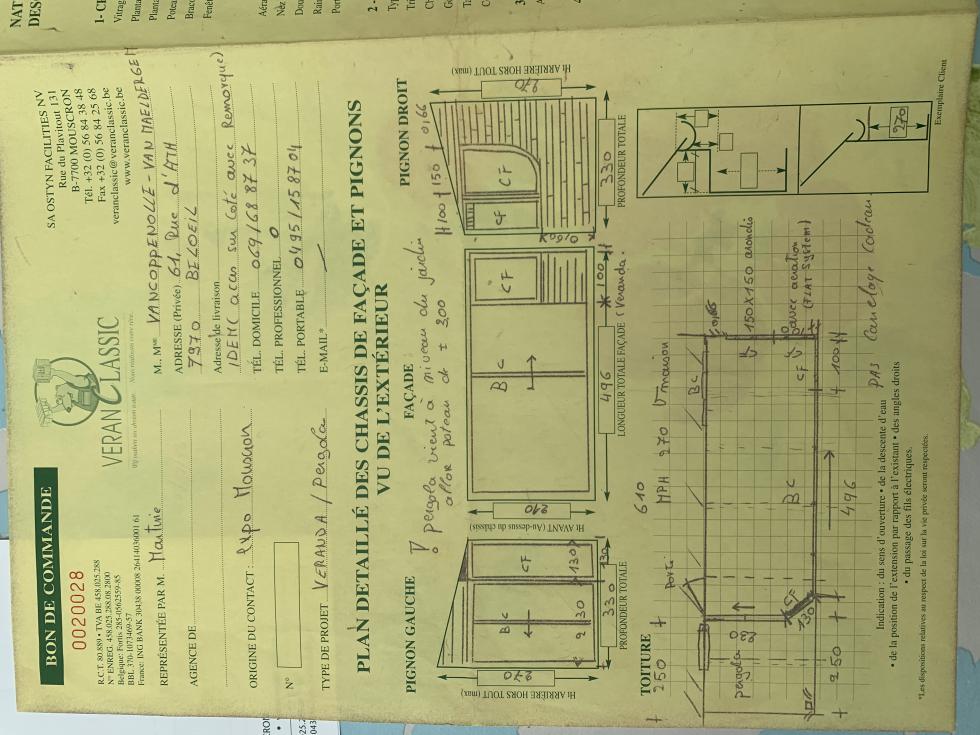 BON DE COMMANDE
0020028
R.C.T. 80.889 • TVA BE 458.025.288
N° ENREG. 458.025.288.08.2800
Belgique: Fortis 285-0562559-85
BBL 370-1073469-57
France: ING BANK 30438 00008 26414036001 61
VERANCLASSIC
Nous réalisons votre rêve...
SA OSTYN FACILITIES NV
Rue du Plavitout 131
B-7700 MOUSCRON
Tél. +32 (0) 56 84 38 48
Fax +32 (0) 56 84 25 68
veranclassic@veranclassic.be
www.veranclassic.be
REPRÉSENTÉE PAR M. Martinie
AGENCE DE
ORIGINE DU CONTACT : Expo Mouscron
N°
TYPE DE PROJET VERANDA / Pergola
M., Mme VANCOPPENOLLE - VAN MAELDERGEM
ADRESSE (Privée) 61, Rue d'ATH
7970 BELOEIL
Adresse de livraison
IDEM (acces sur coté avec Remorque)
TÉL. DOMICILE 069/68 87 37
TÉL. PROFESSIONNEL 0
TÉL. PORTABLE 0495/158704
E-MAIL.*
PLAN DETAILLÉ DES CHASSIS DE FAÇADE ET PIGNONS
VU DE L'EXTÉRIEUR
PIGNON GAUCHE
FAÇADE
PIGNON DROIT
! pergola vient à niveau du jardin
aller poteau de ± 300
H 100 150 0,66
Ht ARRIÈRE HORS TOUT (max)
270
BC
CF
2 30
130
130
330
PROFONDEUR TOTALE
Ht AVANT (Au-dessus du châssis)
210
BC
CF
496
100
LONGUEUR TOTALE FAÇADE (Veranda.
CF
CF
0,60
330
PROFONDEUR TOTALE
270
Ht ARRIÈRE HORS TOUT (max)
TOITURE
250
610
porte
MPH 270
maison
BC
0,66
150x150 arrondis
pergola
CF
130
BC
CF
avec aeration
(FLAT System)
250
496
100
PAS Carrelage Cadeau
270
Indication : • du sens d'ouverture • de la descente d'eau
• de la position de l'extension par rapport à l'existant • des angles droits
• du passage des fils électriques.
*Les dispositions relatives au respect de la loi sur la vie privée seront respectées.
Exemplaire Client